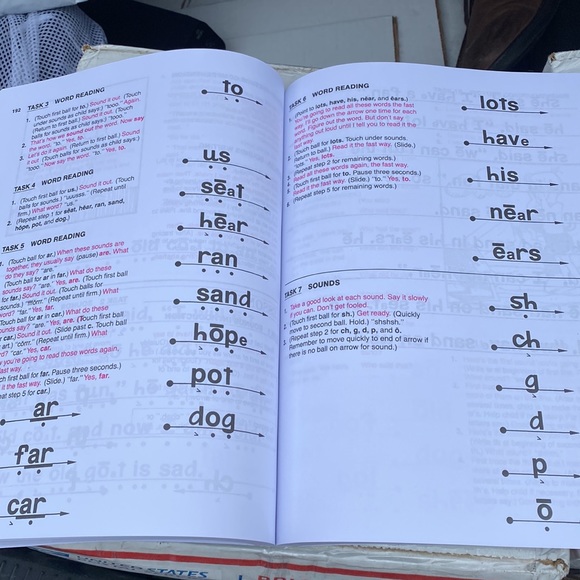 192 TASK 3 WORD READING
1. (Touch first ball for to.) Sound it out. (Touch
under sounds as child says:) "tooo." Again.
(Return to first ball.) Sound it out. (Touch
balls for sounds as child says:) "tooo."
2. That's how we sound out the word. Now say
the word. "to." Yes, to.
3. Let's do it again. (Return to first ball.) Sound
it out. (Touch balls for sounds as child says:)
"tooo." Now say the word. "to." Yes, to.
TASK 4 WORD READING
1. (Touch first ball for us.) Sound it out. (Touch
balls for sounds.) "uuusss." (Repeat until
firm.) What word? "us."
2. (Repeat step 1 for sēat, hēar, ran, sand,
hōpe, pot, and dog.)
TASK 5 WORD READING
(Touch ball for ar.) When these sounds are
together, they usually say (pause) are. What
do they say? "are."
(Touch ball for ar in far.) What do these
sounds say? "are." Yes, are. (Touch first ball
for far.) Sound it out. (Touch balls for
sounds.) (Repeat until firm.) What
word? "far." Yes, far.
(Touch ball for ar in car.) What do these
sounds say? "are." Yes, are. (Touch first ball
car.) Sound it out. (Slide past c. Touch ball
ar.) (Repeat until firm.) What
word? "car." Yes, car.
you're going to read those words again,
fast way.
first ball for far. Pause three seconds.)
it the fast way. (Slide.) "far." Yes, far.
step 5 for car.)
ar
far
car
to
us
sēat
hēar
ran
sand
hōpe
pot
dog
TASK 6 WORD READING
(Point to lots, have, his, nēar, and ēars.)
going to read all these words the fast
way. I'll go down the arrow one time for each
word. Figure out the word. But don't say
anything out loud until I tell you to read it the
fast way.
(Touch ball for lots. Touch under sounds.
Return to ball.) Read it the fast way. (Slide.)
"lots." Yes, lots.
(Repeat step 2 for remaining words.)
Read all these words again, the fast way.
(Touch first ball for to. Pause three seconds.)
Read it the fast way. (Slide.) "to." Yes, to.
(Repeat step 5 for remaining words.)
TASK 7 SOUNDS
1. Take a good look at each sound. Say it slowly
if you can. Don't get fooled.
2. (Touch first ball for sh.) Get ready. (Quickly
move to second ball. Hold.) "shshsh."
3. (Repeat step 2 for ch, g, d, p, and ō.
Remember to move quickly to end of arrow if
there is no ball on arrow for sound.)
lots
have
his
nēar
ēars
sh
ch
g
d
p
ō
UNITED STATES